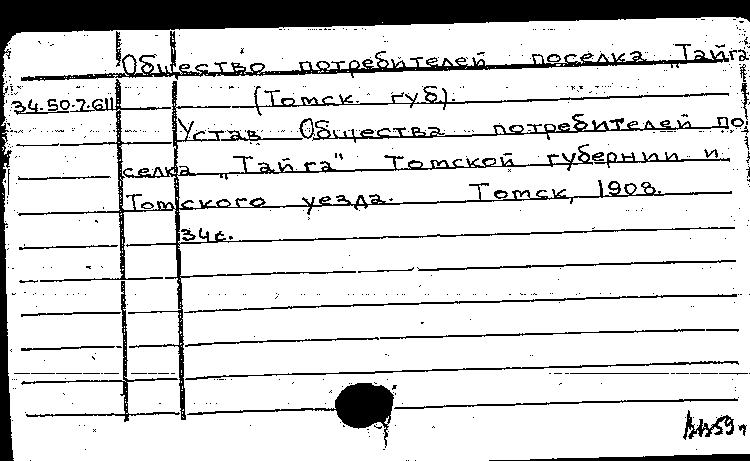 Общество потребителей поселка „Тайга
34.50.7.611 (Томск. губ).
Устав Общества потребителей по
селка „Тайга" Томской губернии и
Томского уезда. Томск, 1908.
34с.